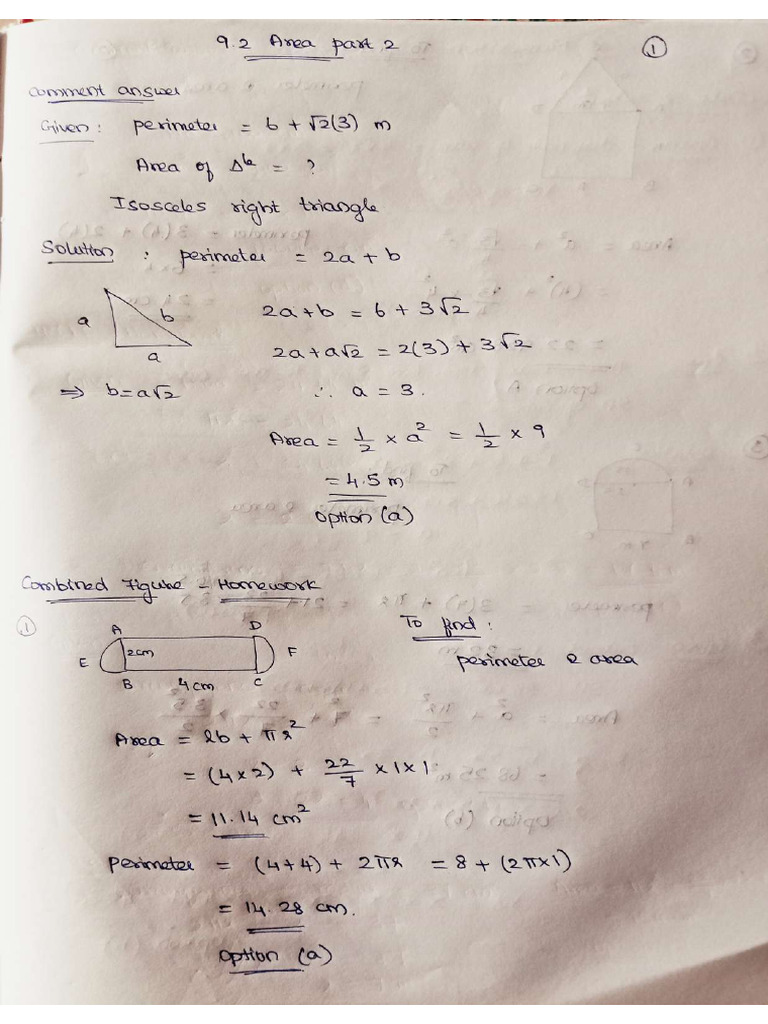 9.2 Area part 2
1
Comment answer
Given : perimeter = 6 + √2(3) m
Area of Δle = ?
Isosceles right triangle
Solution : perimeter = 2a + b
a b a
2a + b = 6 + 3√2
2a + a√2 = 2(3) + 3√2
⇒ b = a√2 ∴ a = 3.
Area = 1/2 × a² = 1/2 × 9
= 4.5 m
Option (a)
Combined Figure - Homework
1
A D
E 2cm F
B 4cm C
To find :
perimeter & area
Area = lb + πr²
= (4×2) + 22/7 × 1 × 1
= 11.14 cm²
Perimeter = (4+4) + 2πr = 8 + (2π×1)
= 14.28 cm.
Option (a)